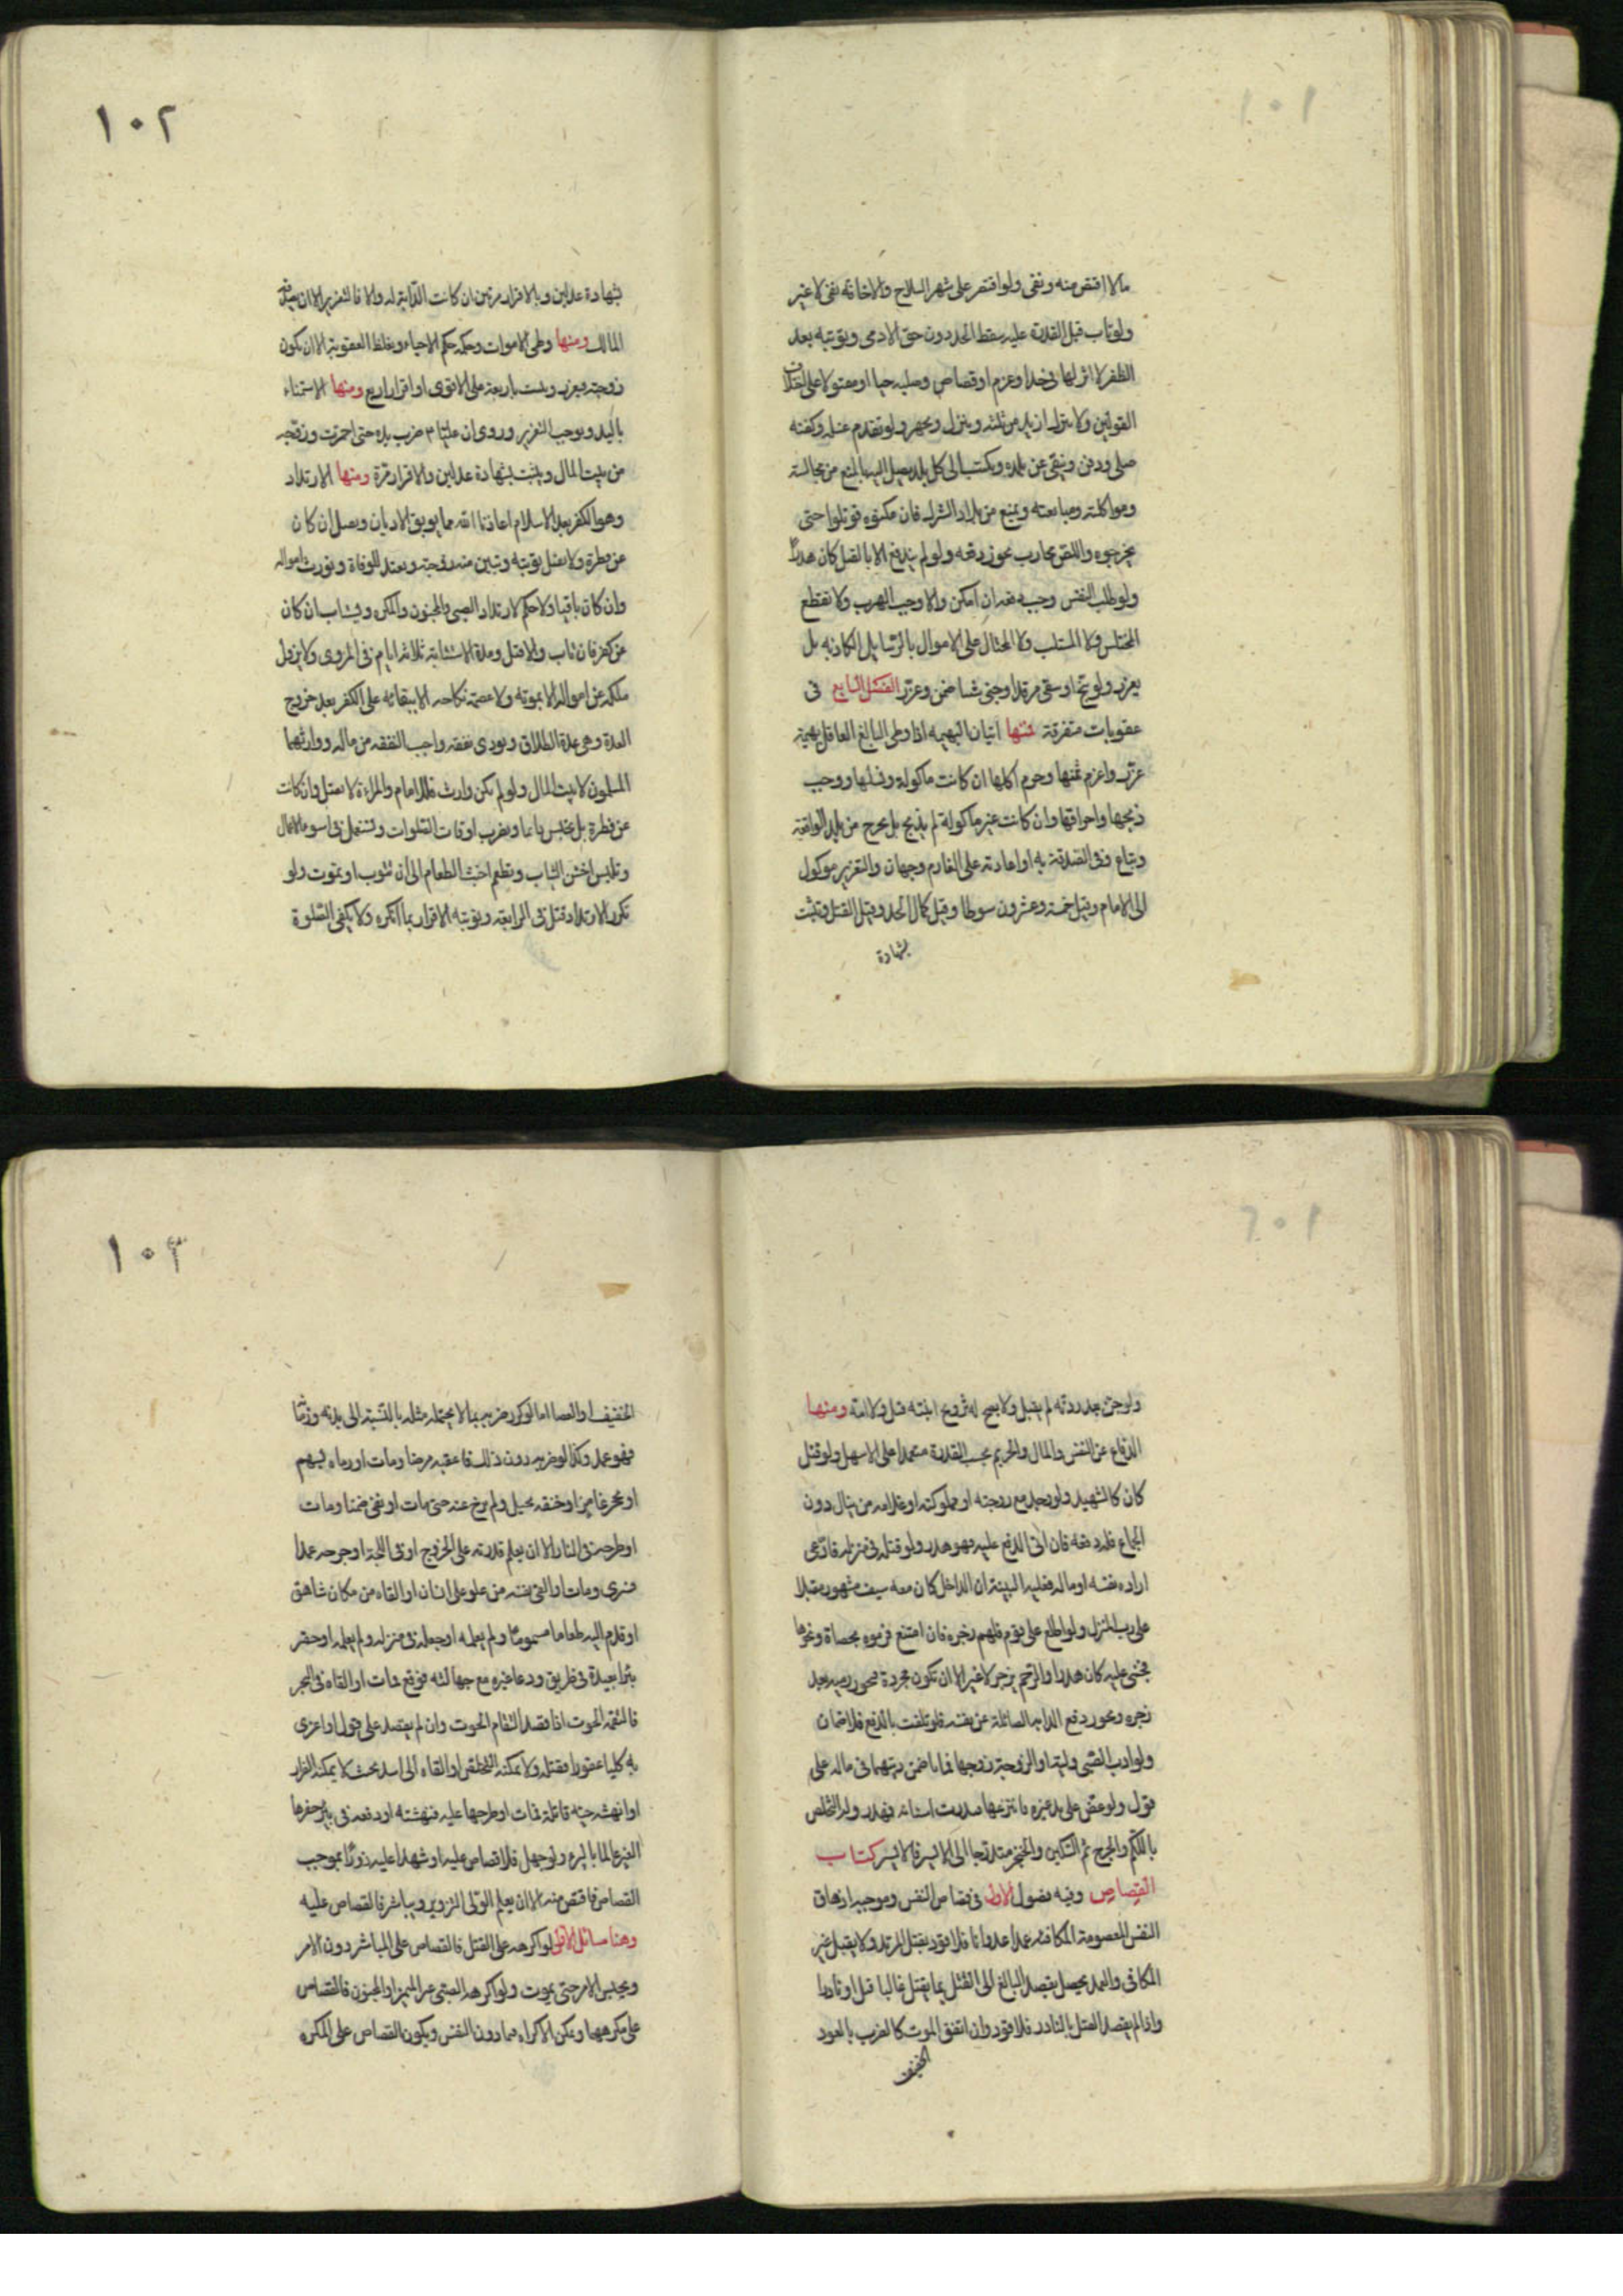 ١٠١
مالا اقتص منه ونفى ولو اقتصر على شهر السلاح والاخافة نفى لا غير
ولو تاب قبل القدرة عليه سقط الحد دون حق الادمى وبتوبته بعد
الظفر لا اثر لها فى حد او غرم او قصاص وصلبه حيا او مقتولا على اختلاف
القولين ولا يترك ازيد من ثلثة وينزل ويجهز ولو تقدم غسله وكفنه
صلى ودفن وينفى عن بلده ويكتب الى كل بلد يصل اليه بالمنع من مجالسته
ومواكلته ومبايعته ويمنع من بلاد الشرك فان مكنوه قوتلوا حتى
يخرجوه واللص محارب يجوز دفعه ولو لم يندفع الا بالقتل كان هدرا
ولو طلب النفس وجب دفعه ان امكن والا وجب الهرب ولا يقطع
المختلس ولا المستلب ولا المحتال على الاموال بالرسايل الكاذبة بل
يعزر ولو بنج او سقى مرقدا وجنى شيئا ضمن وعزر الفصل السابع فى
عقوبات متفرقة فمنها اتيان البهيمه اذا وطى البالغ العاقل بهيمة
عزر واغرم ثمنها وحرم اكلها ان كانت ماكولة ونسلها ووجب
ذبحها واحراقها وان كانت غير ماكولة لم يذبح بل يخرج من بلد الواقعة
ويباع وفى الصدقة به او اعادته على الغارم وجهان والتعزير موكول
الى الامام وقيل خمسة وعشرون سوطا وقيل كمال الحد وقيل القتل ويثبت
بشهادة
١٠٢
بشهادة عدلين وبالاقرار مرتين ان كانت الدابة له والا فالتعزير الا ان يصدقه
المالك ومنها وطى الاموات وحكمه حكم الاحياء ويغلظ العقوبة الا ان يكون
زوجته فيعزر ويثبت باربعة على الاقوى او اقرار اربع ومنها الاستمناء
باليد ويوجب التعزير وروى ان عليا ع ضرب يده حتى احمرت وزوجه
من بيت المال ويثبت بشهادة عدلين والاقرار مرة ومنها الارتداد
وهو الكفر بعد الاسلام اعاذنا الله مما يوبق الاديان ويقتل ان كان
عن فطرة ولا تقبل توبته وتبين منه زوجته وتعتد للوفاة وتورث امواله
وان كان باقيا ولا حكم لارتداد الصبى والمجنون والمكره ويستتاب ان كان
عن كفر فان تاب والا قتل ومدة الاستتابة ثلاثة ايام فى المروى ولا يزول
ملكه عن امواله الا بموته ولا عصمة نكاحه الا ببقائه على الكفر بعد خروج
العدة وهى عدة الطلاق ويودى نفقة واجب النفقه من ماله ووارثهما
المسلمون لا بيت المال ولو لم يكن وارث فللامام والمراءة لا تقتل وان كانت
عن فطرة بل تحبس دائما وتضرب اوقات الصلوات وتستعمل فى اسوء الاعمال
وتلبس اخشن الثياب وتطعم اخبث الطعام الى ان تتوب او تموت ولو
تكرر الارتداد قتل فى الرابعة وتوبته الاقرار بما انكره ولا يكفى الصلوة
١٠٢
ولو جن بعد ردته لم يقتل ولا يصح له تزويج ابنته قيل ولا امته ومنها
الدفاع عن النفس والمال والحريم بحسب القدرة معتمدا على الاسهل ولو قتل
كان كالشهيد ولو وجد مع زوجته او مملوكته او غلامه من ينال دون
الجماع فله دفعه فان اتى الدفع عليه فهو هدر ولو قتله فى منزله فادعى
اراده نفسه او ماله فعليه البينة ان الداخل كان معه سيف مشهور مقبلا
على رب المنزل ولو اطلع على قوم فلهم زجره فان امتنع فرموه بحصاة ونحوها
فجنى عليه كان هدرا والرحم يزجر لا غير الا ان تكون مجردة فيجوز رميه بعد
زجره ويجوز دفع الدابه الصائلة عن نفسه فلو تلفت بالدفع فلا ضمان
ولو ادب الصبى وليه او الزوجة زوجها فماتا ضمن ديتهما فى ماله على
قول ولو عض على يد غيره فانتزعها فندرت اسنانه فهدر وله التخلص
باللكم والجرح ثم السكين والخنجر متدرجا الى الايسر فالايسر كتاب
القصاص وفيه فصول الاول فى قصاص النفس وموجبه ازهاق
النفس المعصومة المكافئه عمدا عدوانا فلا قود بقتل المرتد ولا بقتل غير
المكافى والعمد يحصل بقصد البالغ الى القتل بما يقتل غالبا قيل او نادرا
واذا لم يقصد القتل بالنادر فلا قود وان اتفق الموت كالضرب بالعود
الخفيف
١٠٣
الخفيف او العصا اما لو كرر ضربه بما لا يحتمله مثله بالنسبة الى بدنه وزمانه
فهو عمد وكذا لو ضربه دون ذلك فاعقبه مرضا ومات او رماه بسهم
او بحجر غامز او خنقه بحبل ولم يرخ عنه حتى مات او بقى ضمنا ومات
او طرحه فى النار الا ان يعلم قدرته على الخروج او فى اللجة او جرحه عمدا
فسرى ومات او القى نفسه من علو على انسان او القاه من مكان شاهق
او قدم اليه طعاما مسموما ولم يعلمه او جعله فى منزله ولم يعلمه او حفر
بئرا بعيدة فى طريق ودعا غيره مع جهالته فوقع فمات او القاه فى البحر
فالتقمه الحوت اذا قصد التقام الحوت وان لم يقصد على قول او اغرى
به كلبا عقورا فقتله ولا يمكنه التخلص او القاه الى اسد بحيث لا يمكنه الفرار
او انهشه حية قاتلة فمات او طرحها عليه فنهشته او دفعه فى بئر حفرها
الغير عالما بالبئر ولو جهل فلا قصاص عليه او شهدا عليه زورا بموجب
القصاص فاقتص منه الا ان يعلم الولى التزوير ويباشر فالقصاص عليه
وهنا مسائل الاولى لو اكرهه على القتل فالقصاص على المباشر دون الامر
ويحبس الامر حتى يموت ولو اكره الصبى غير المميز او المجنون فالقصاص
على مكرههما ويمكن الاكراه فيما دون النفس ويكون القصاص على المكره